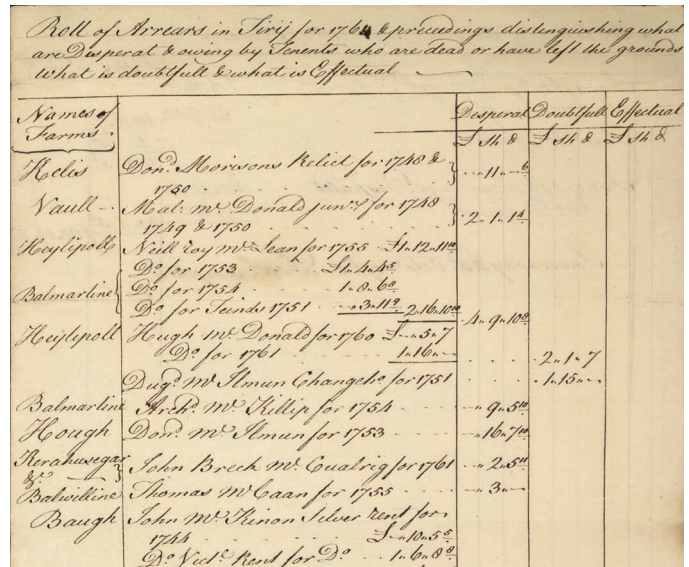 Roll of Arrears in Tirij for 1764 & preceedings distinguishing what
are Desperat & owing by Tenents who are dead or have left the grounds
What is doubtfull & what is Effectual
Names of Farms Desperat Doubtfull Effectual
£ sh d £ sh d £ sh d
Kelis Dond. Morisons Relict for 1748 &
1750 " 11 " 6
Vaull Mal: Mc Donald junr. for 1748
1749 & 1750 2 " 1 " 14
Heylipoll Neill roy Mc Lean for 1755 £1 " 12 " 11 10
Do for 1753 £1 " 4 " 4 5
Balmartine Do for 1754 1 " 8 " 6 8
Do for Teinds 1751 " 3 " 11 9 2 " 16 " 10 10 4 " 9 " 10 8
Heylipoll Hugh Mc Donald for 1760 £ " 5 " 7
Do for 1761 1 " 16 " 2 " 1 " 7
Dugd. Mc Ilmun Changeho for 1751 1 " 15 "
Balmartine Archd. Mc Killip for 1754 " 9 " 5 10
Hough Dond. Mc Ilmun for 1753 " 16 " 7 10
Kerahusegar &c. John Breck Mc Cualrig for 1761 " 2 " 5 11
Balwilline Thomas McCaan for 1755 " 3 "
Baugh John Mc Kinon Silver rent for
1744 £ " 10 " 5 5
Do Victl. Rent for Do 1 " 6 " 8 8